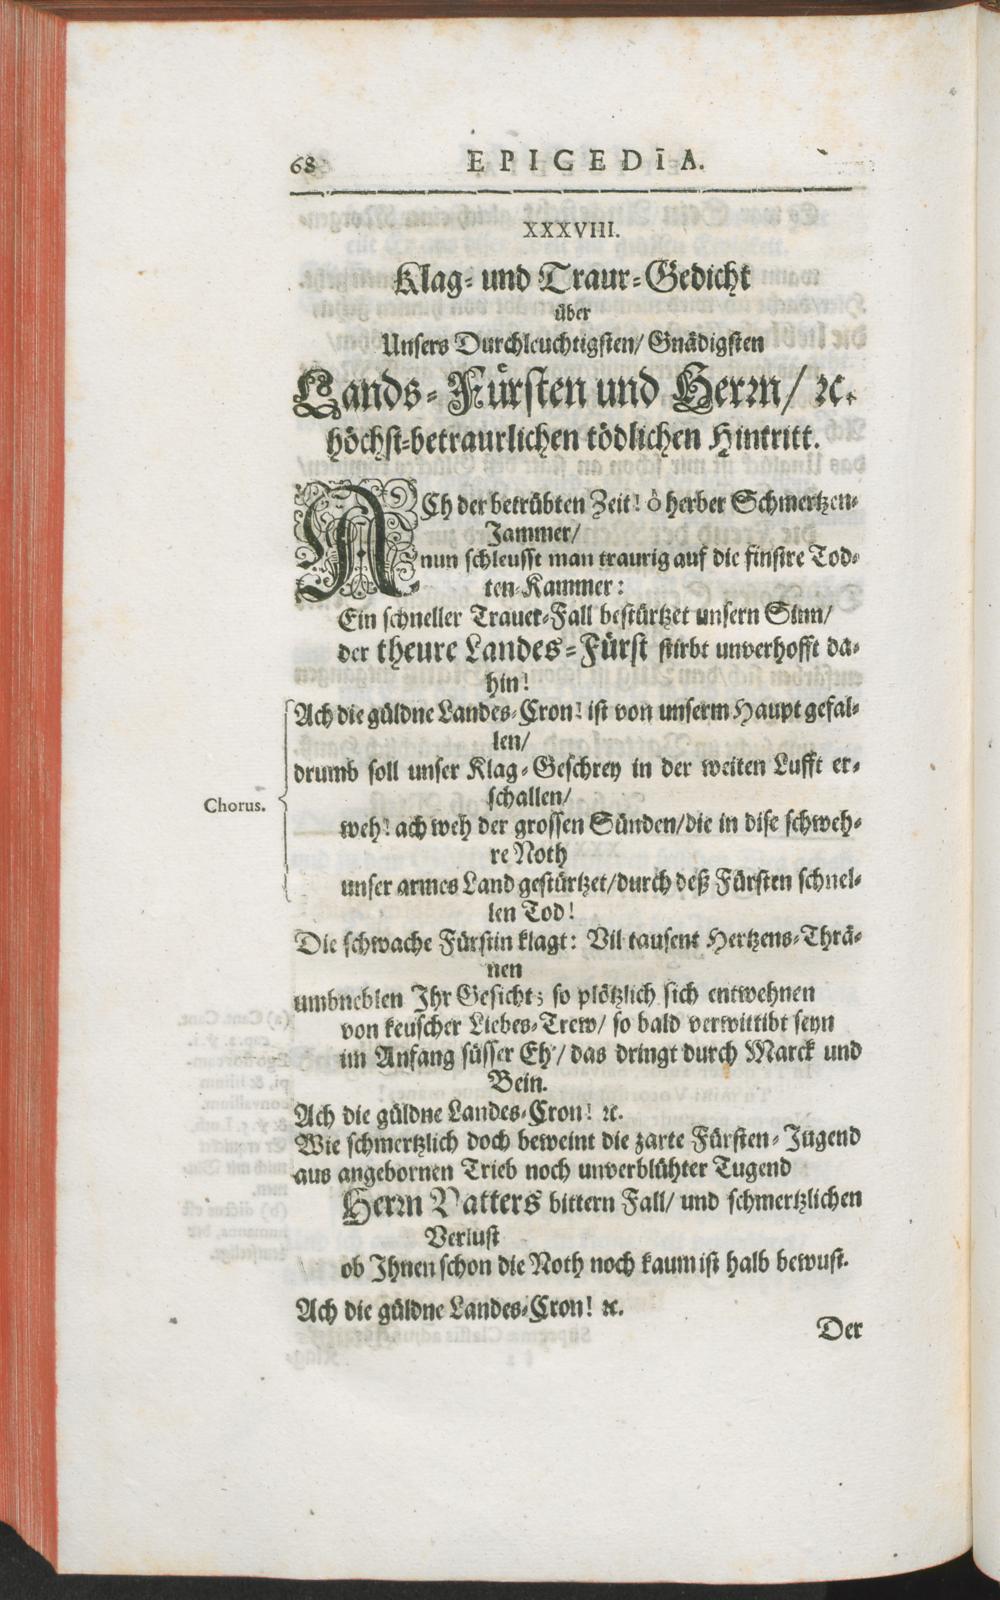 68 EPICEDIA.
XXXVIII.
Klag- und Traur-Gedicht
über
Unsers Durchleuchtigsten/ Gnädigsten
Lands-Fürsten und Herrn/ ꝛc.
höchst-betraurlichen tödlichen Hintritt.
ACh der betrübten Zeit! ô herber Schmertzen-
Jammer/
nun schleusst man traurig auf die finstre Tod-
ten-Kammer:
Ein schneller Trauer-Fall bestürtzet unsern Sinn/
der theure Landes-Fürst stirbt unverhofft da-
hin!
Ach die güldne Landes-Cron! ist von unserm Haupt gefal-
len/
drumb soll unser Klag-Geschrey in der weiten Lufft er-
schallen/
Chorus.
weh! ach weh der grossen Sünden/die in dise schweh-
re Noth
unser armes Land gestürtzet/durch deß Fürsten schnel-
len Tod!
Die schwache Fürstin klagt: Vil tausent Hertzens-Thrä-
nen
umbneblen Ihr Gesicht; so plötzlich sich entwehnen
von keuscher Liebes-Trew/ so bald verwittibt seyn
im Anfang süsser Eh'/ das dringt durch Marck und
Bein.
Ach die güldne Landes-Cron! ꝛc.
Wie schmertzlich doch beweint die zarte Fürsten-Jugend
aus angebornen Trieb noch unverblühter Tugend
Herrn Vatters bittern Fall/ und schmertzlichen
Verlust
ob Ihnen schon die Noth noch kaum ist halb bewust.
Ach die güldne Landes-Cron! ꝛc.
Der